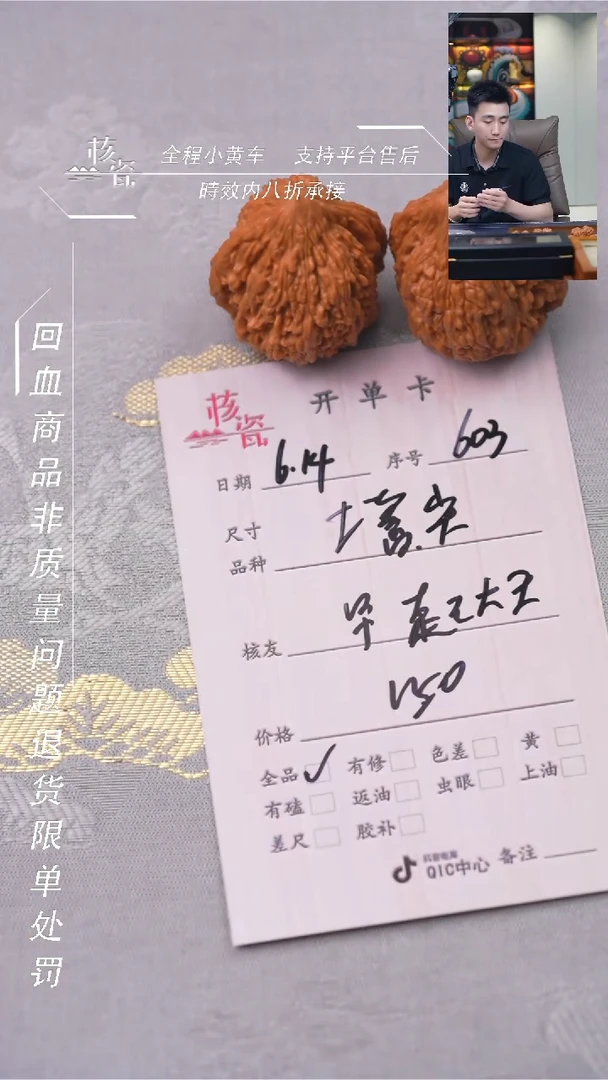 核瓷
全程小黄车 支持平台售后
時效内八折承接
回血商品非质量问题退货限单处罚
核瓷
开单卡
日期 6.14 序号 603
尺寸
品种
核友
价格 150
全品 ✓ 有修 色差 黄
有磕 返油 虫眼 上油
差尺 胶补
抖音电商
QIC中心 备注